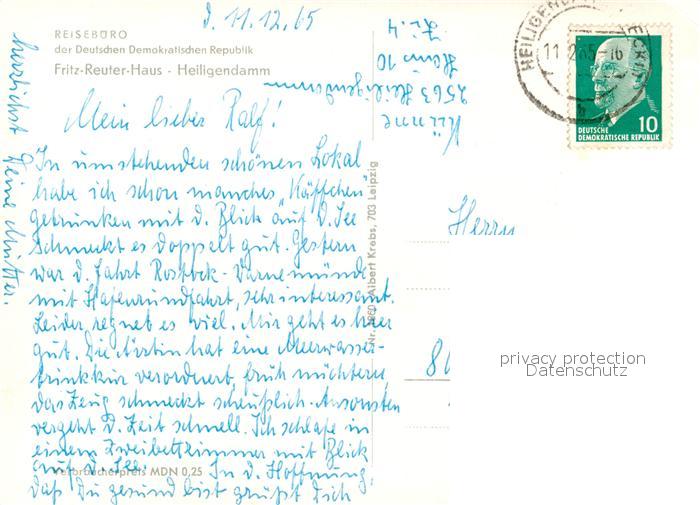 d. 11.12.65
REISEBÜRO
der Deutschen Demokratischen Republik
Fritz-Reuter-Haus - Heiligendamm
Mein lieber Ralf!
In umstehenden schönen Lokal
habe ich schon manches „Käffchen"
getrunken mit d. Blick auf d. See
schmeckt es doppelt gut. Gestern
war d. Fahrt Rostock - Warnemünde
mit Hafenrundfahrt, sehr interessant.
Leider regnet es viel. Mir geht es hier
gut. Die Ärztin hat eine Meerwasser-
trinkkur verordnet, früh nüchtern,
das Zeug schmeckt scheußlich. Ansonsten
vergeht d. Zeit schnell. Ich schlafe in
einem Zweibettzimmer mit Blick
auf d. See. In d. Hoffnung,
daß Du gesund bist grüßt Dich
herzlichst
Deine Mutter.
Verbraucherpreis MDN 0,25
Albert Krebs, 703 Leipzig
2563 Heiligendamm
Haus 10
Zi. 4
HEILIGEND
11
DEUTSCHE
DEMOKRATISCHE REPUBLIK
10
Herrn
privacy protection
Datenschutz